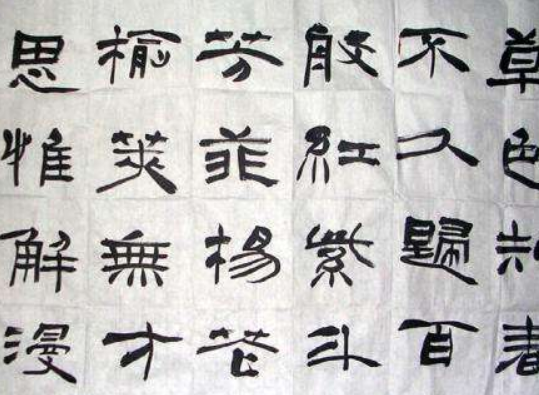 草色知春
不久歸百
般紅紫斗
芳菲楊花
榆莢無才
思惟解漫